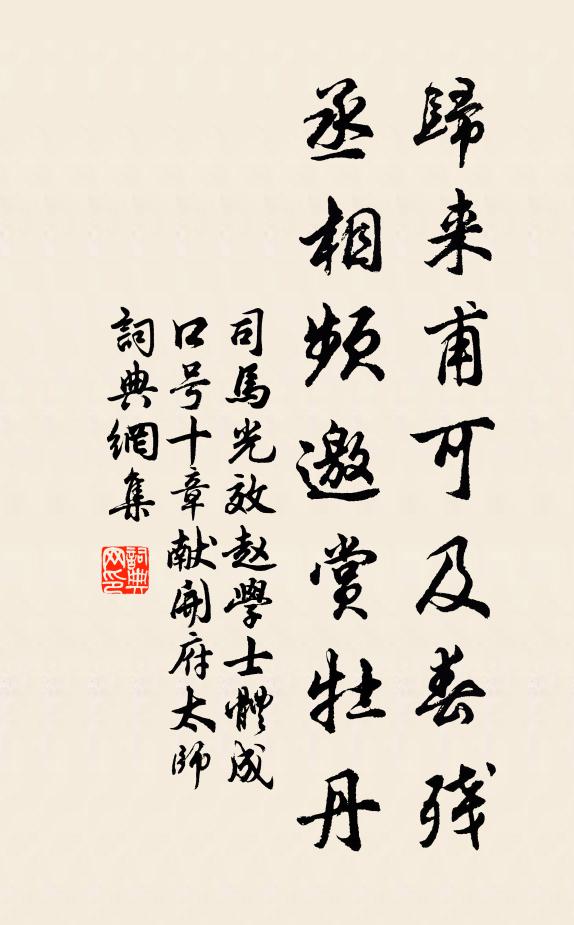 歸来甫可及春残
丞相頻邀賞牡丹
司馬光效赵學士體成
口号十章献開府太師
詞典網集
詞典网印